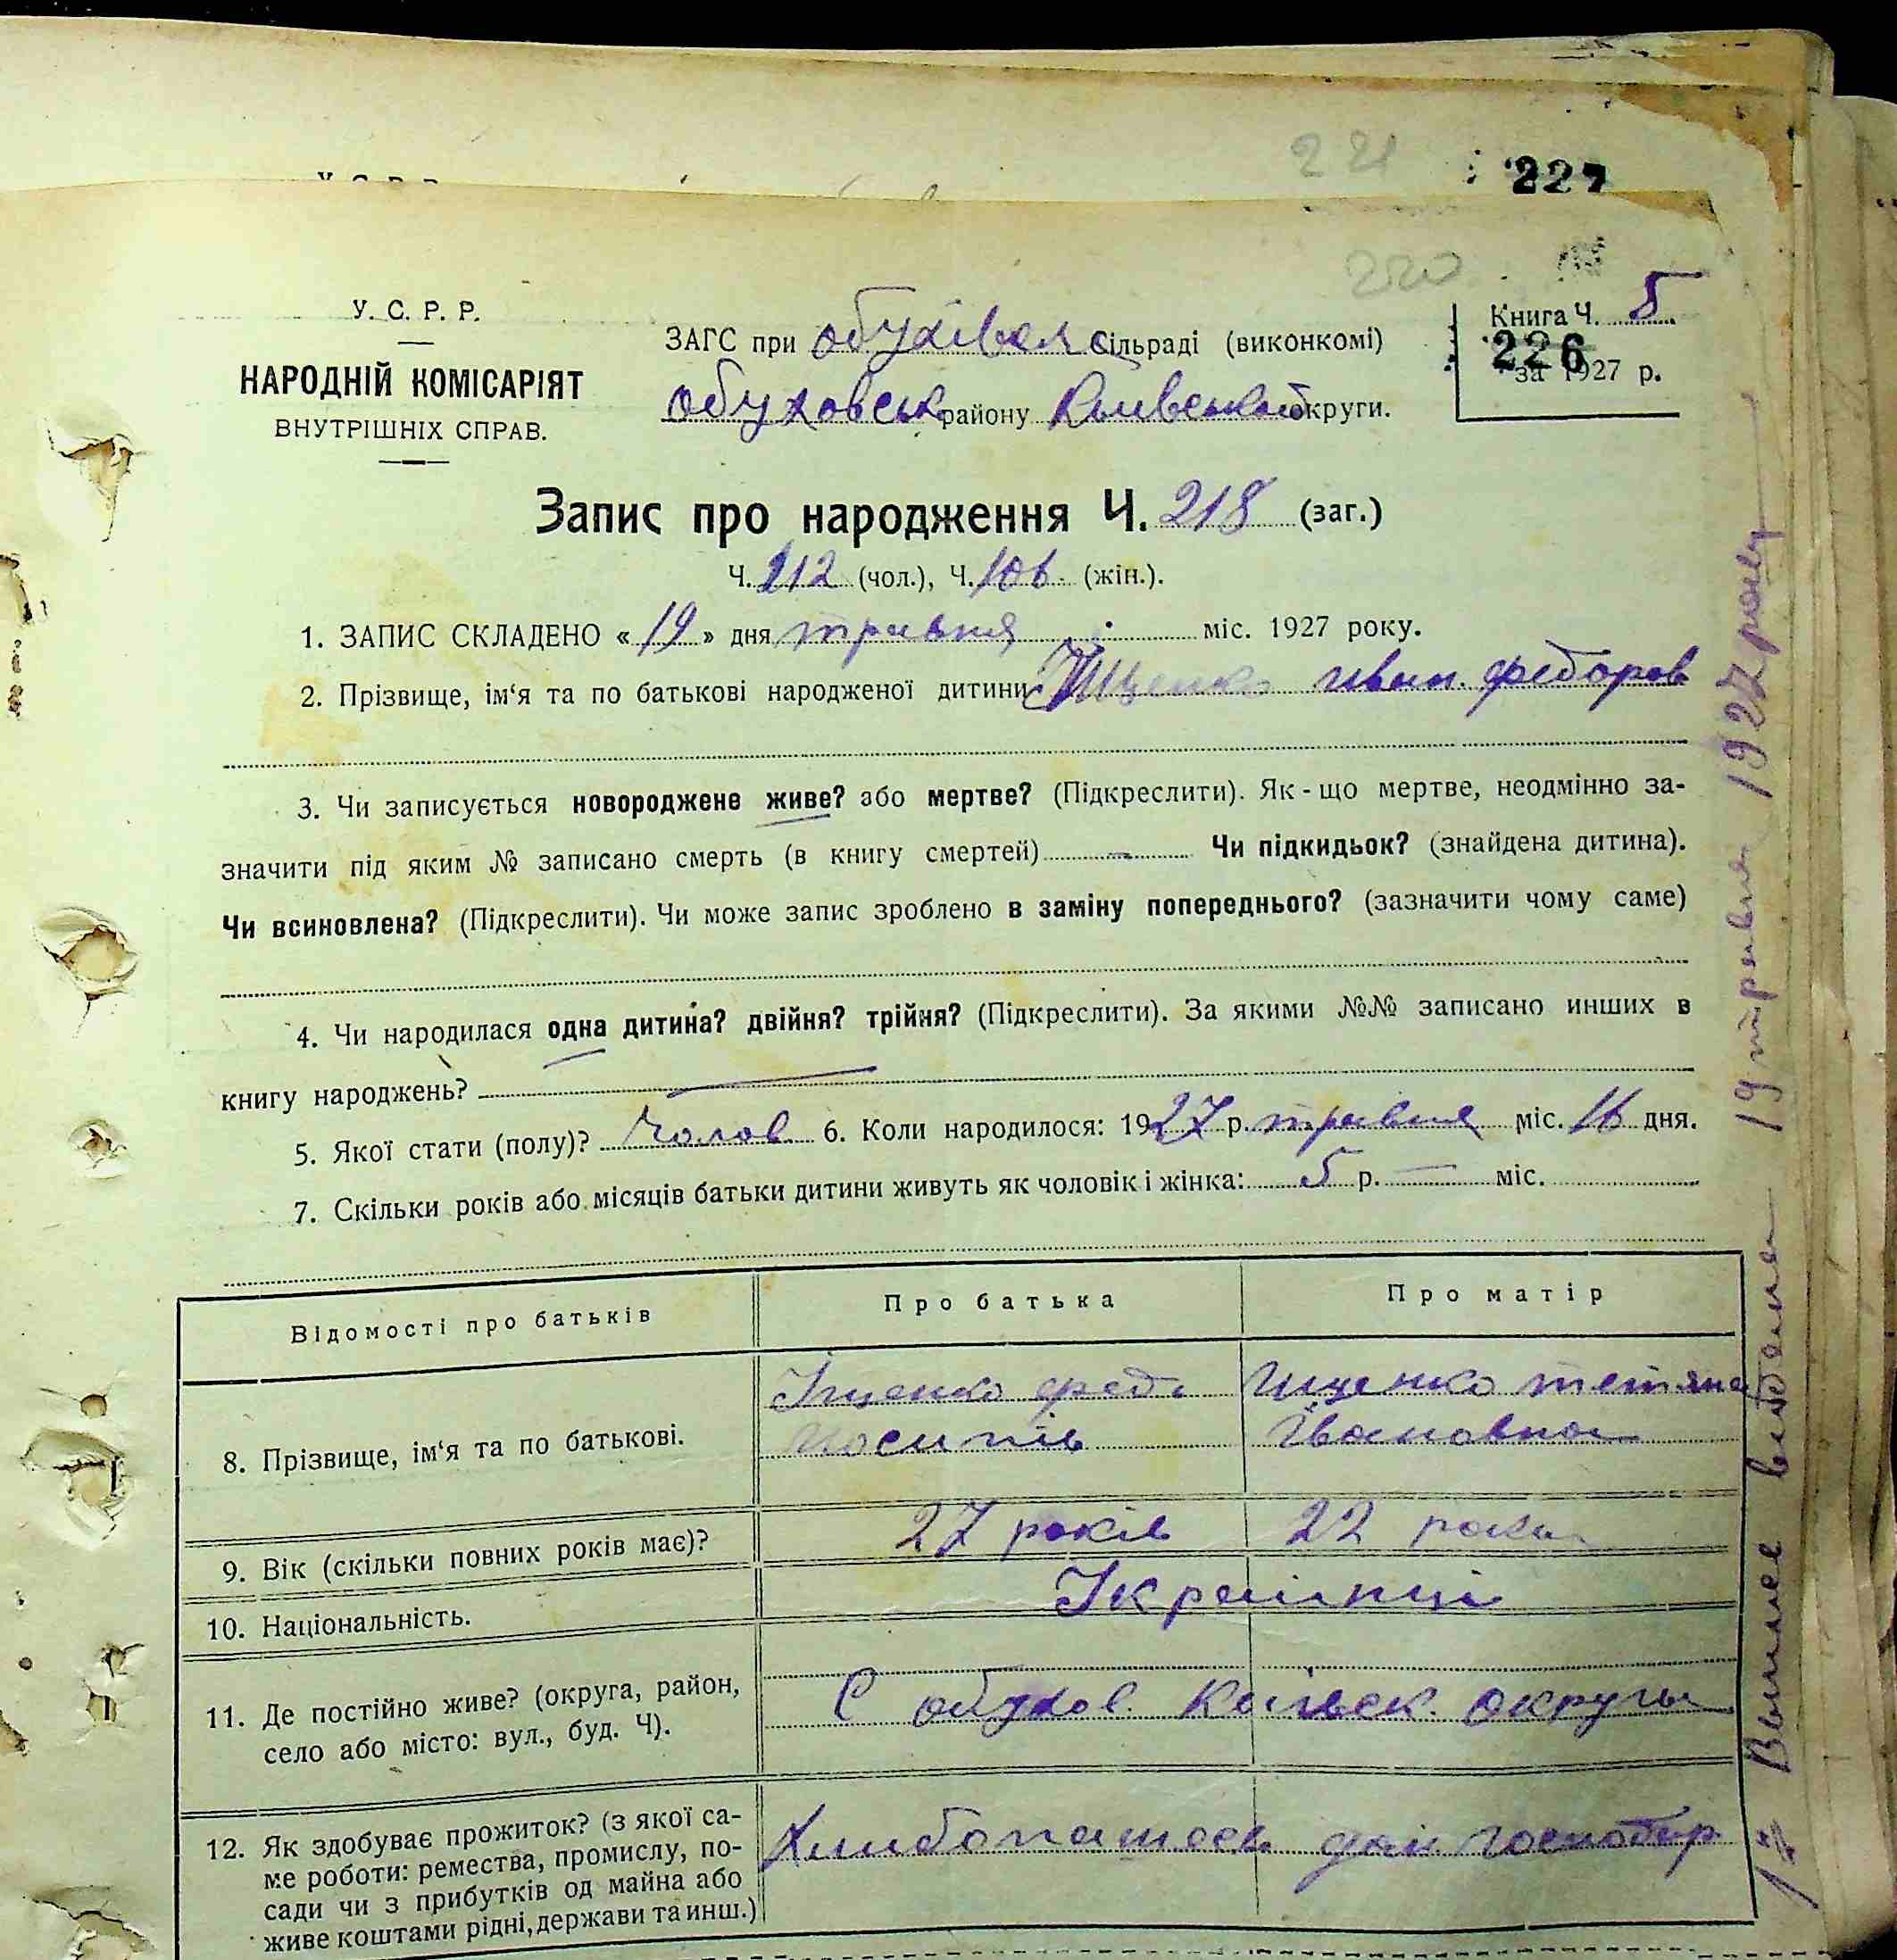 221 227
220
У. С. Р. Р.
НАРОДНІЙ КОМІСАРІЯТ
ВНУТРІШНІХ СПРАВ.
ЗАГС при Обухівск Сільраді (виконкомі)
Обуховськ району Київської округи.
Книга Ч. 5
226
за 1927 р.
Запис про народження Ч. 218 (заг.)
Ч. 112 (чол.), Ч. 106 (жін.).
1. ЗАПИС СКЛАДЕНО « 19 » дня травня міс. 1927 року.
2. Прізвище, ім‘я та по батькові народженої дитини Іщенко иван федоров
3. Чи записується новороджене живе? або мертве? (Підкреслити). Як-що мертве, неодмінно за-
значити під яким № записано смерть (в книгу смертей) — Чи підкидьок? (знайдена дитина).
Чи всиновлена? (Підкреслити). Чи може запис зроблено в заміну попереднього? (зазначити чому саме)
4. Чи народилася одна дитина? двійня? трійня? (Підкреслити). За якими №№ записано инших в
книгу народжень? —
5. Якої стати (полу)? Чолов 6. Коли народилося: 1927 р. травня міс. 16 дня.
7. Скільки років або місяців батьки дитини живуть як чоловік і жінка: 5 р. — міс.
Відомості про батьків Про батька Про матір
8. Прізвище, ім‘я та по батькові.
Іщенко фед. Ищенко тетяна
иосипів Івановна
9. Вік (скільки повних років має)? 27 років 22 роки
10. Національність. Українці
11. Де постійно живе? (округа, район,
село або місто: вул., буд. Ч).
С обухов. Київск. округы
12. Як здобуває прожиток? (з якої са-
ме роботи: ремества, промислу, по-
сади чи з прибутків од майна або
живе коштами рідні, держави та инш.)
Хлибопашосв дом. господар
Выписев выдана 19 травня 1927 року